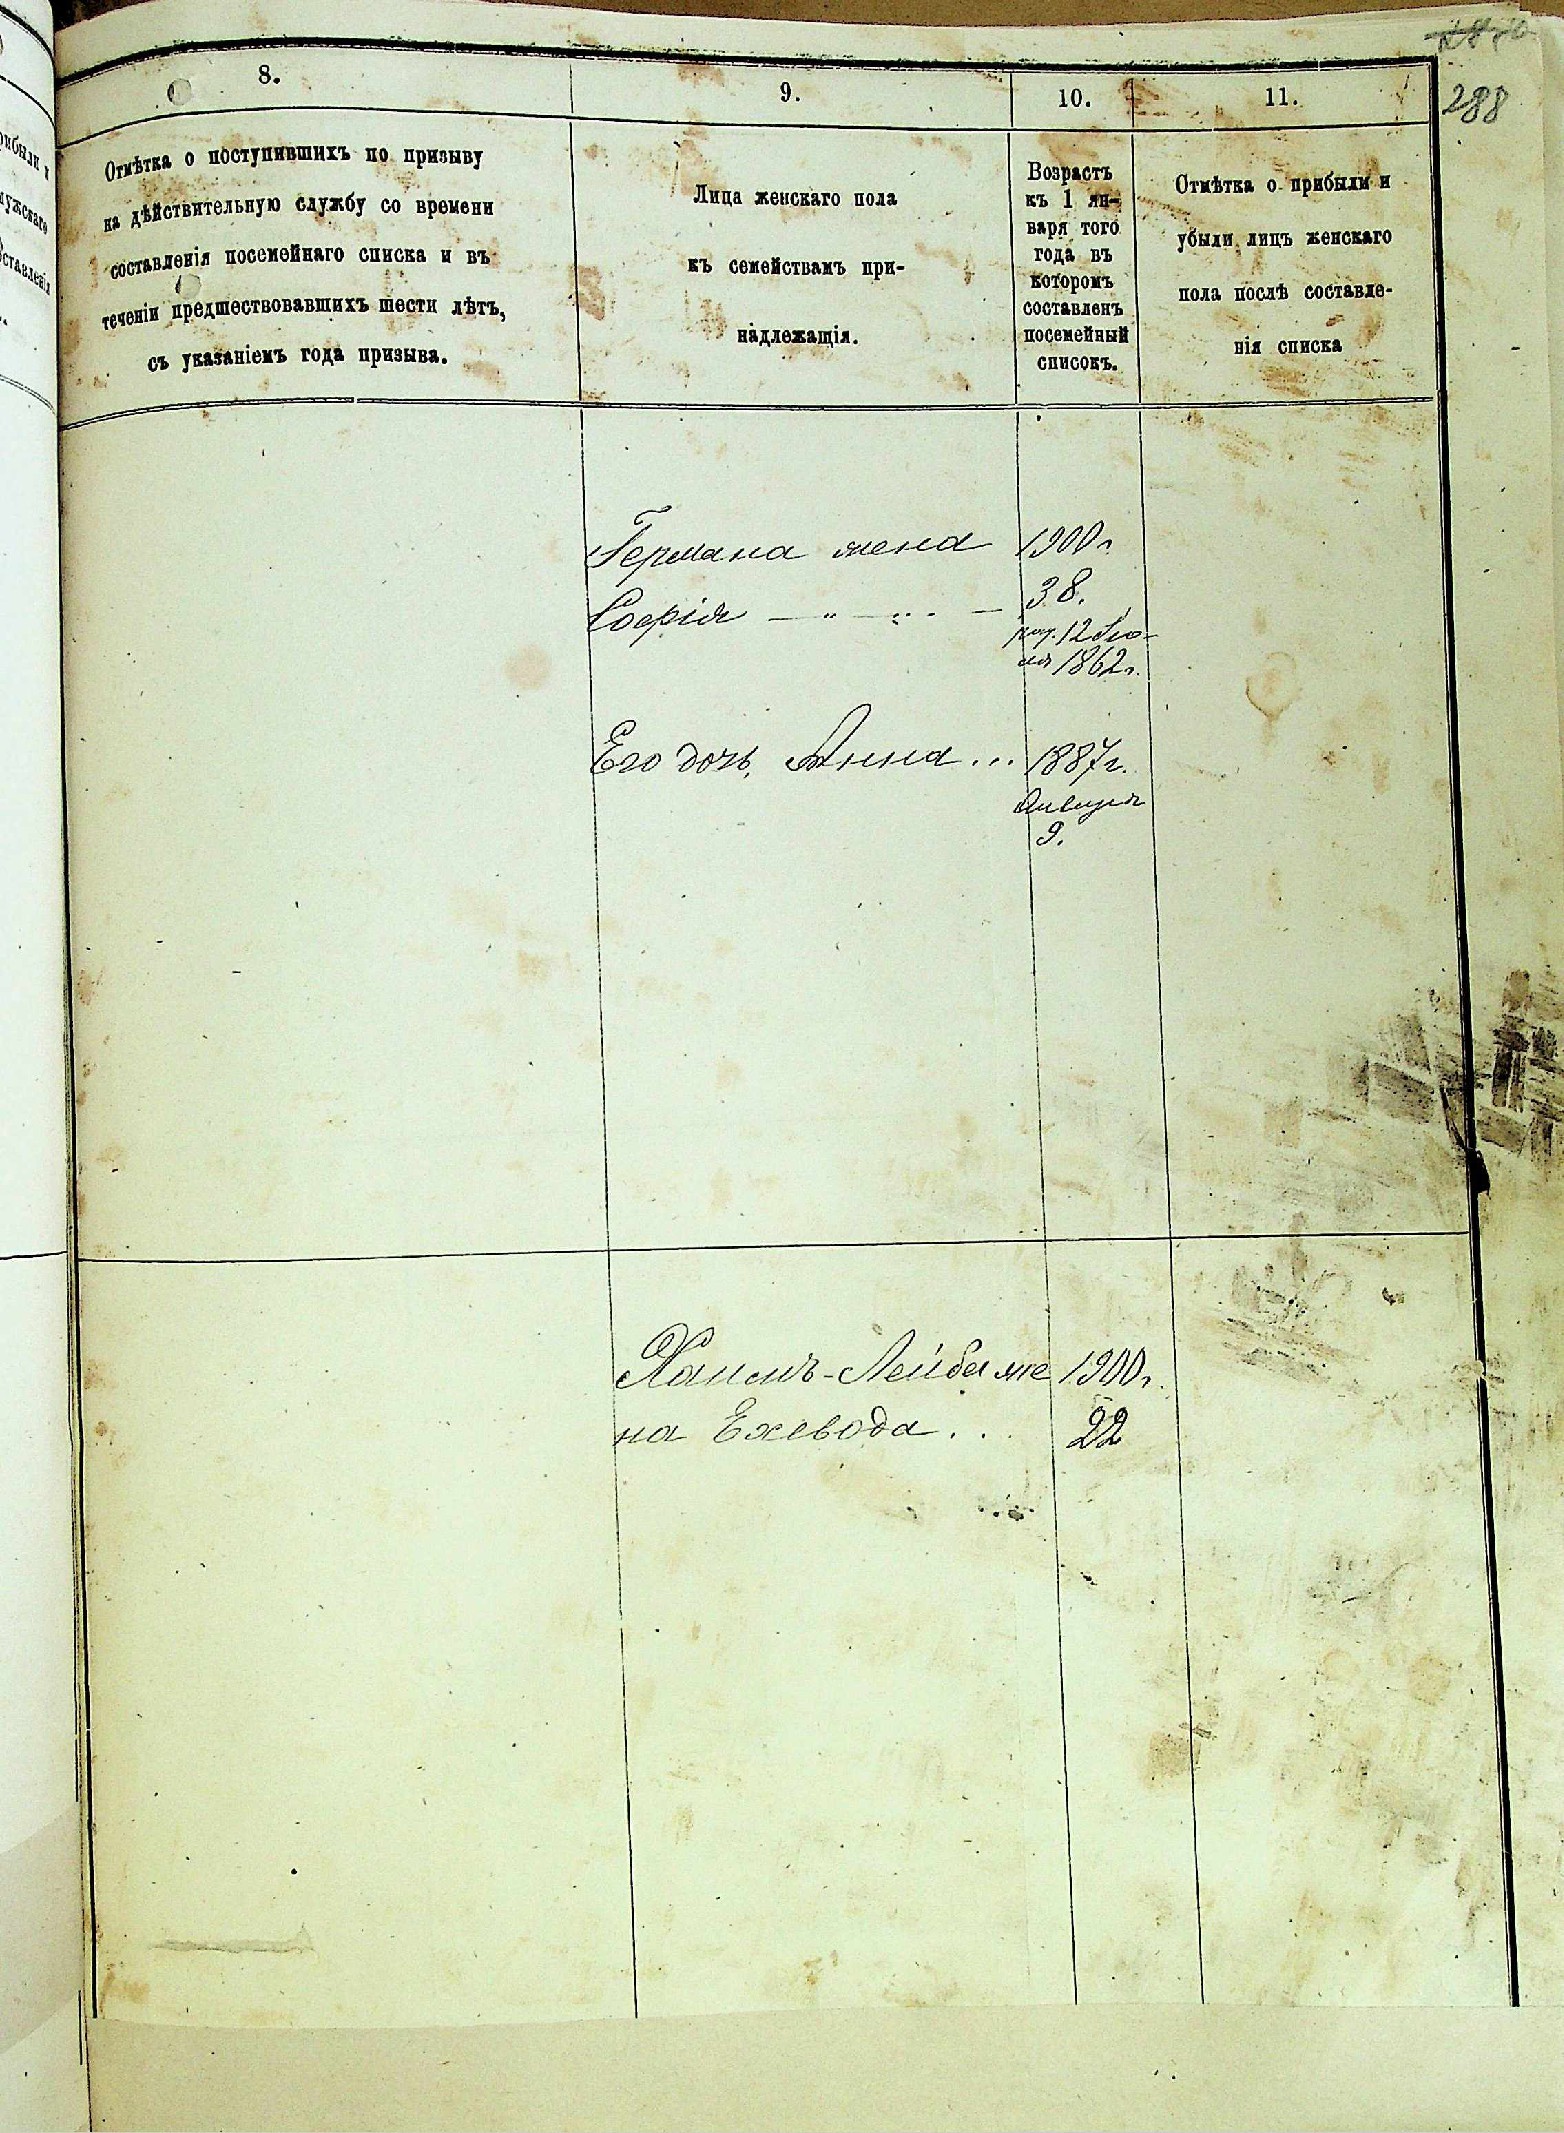 288
8.
9.
10.
11.
Отмѣтка о поступившихъ по призыву
на дѣйствительную службу со времени
составленія посемейнаго списка и въ
теченіи предшествовавшихъ шести лѣтъ,
съ указаніемъ года призыва.
Лица женскаго пола
къ семействамъ при-
надлежащія.
Возрастъ
къ 1 ян-
варя того
года въ
которомъ
составленъ
посемейный
списокъ.
Отмѣтка о прибыли и
убыли лицъ женскаго
пола послѣ составле-
нія списка
Германа жена 1900 г.
Софія 38.
12
1862 г.
Его дочь Анна ... 1887 г.
Января
9.
Хаимъ-Лейба же 1900 г.
на Ехевода . . 22